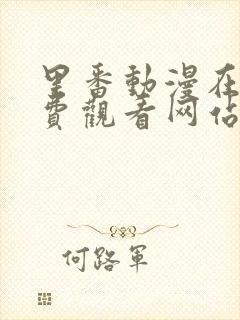 里番動漫在
費觀看网佔
何路軍